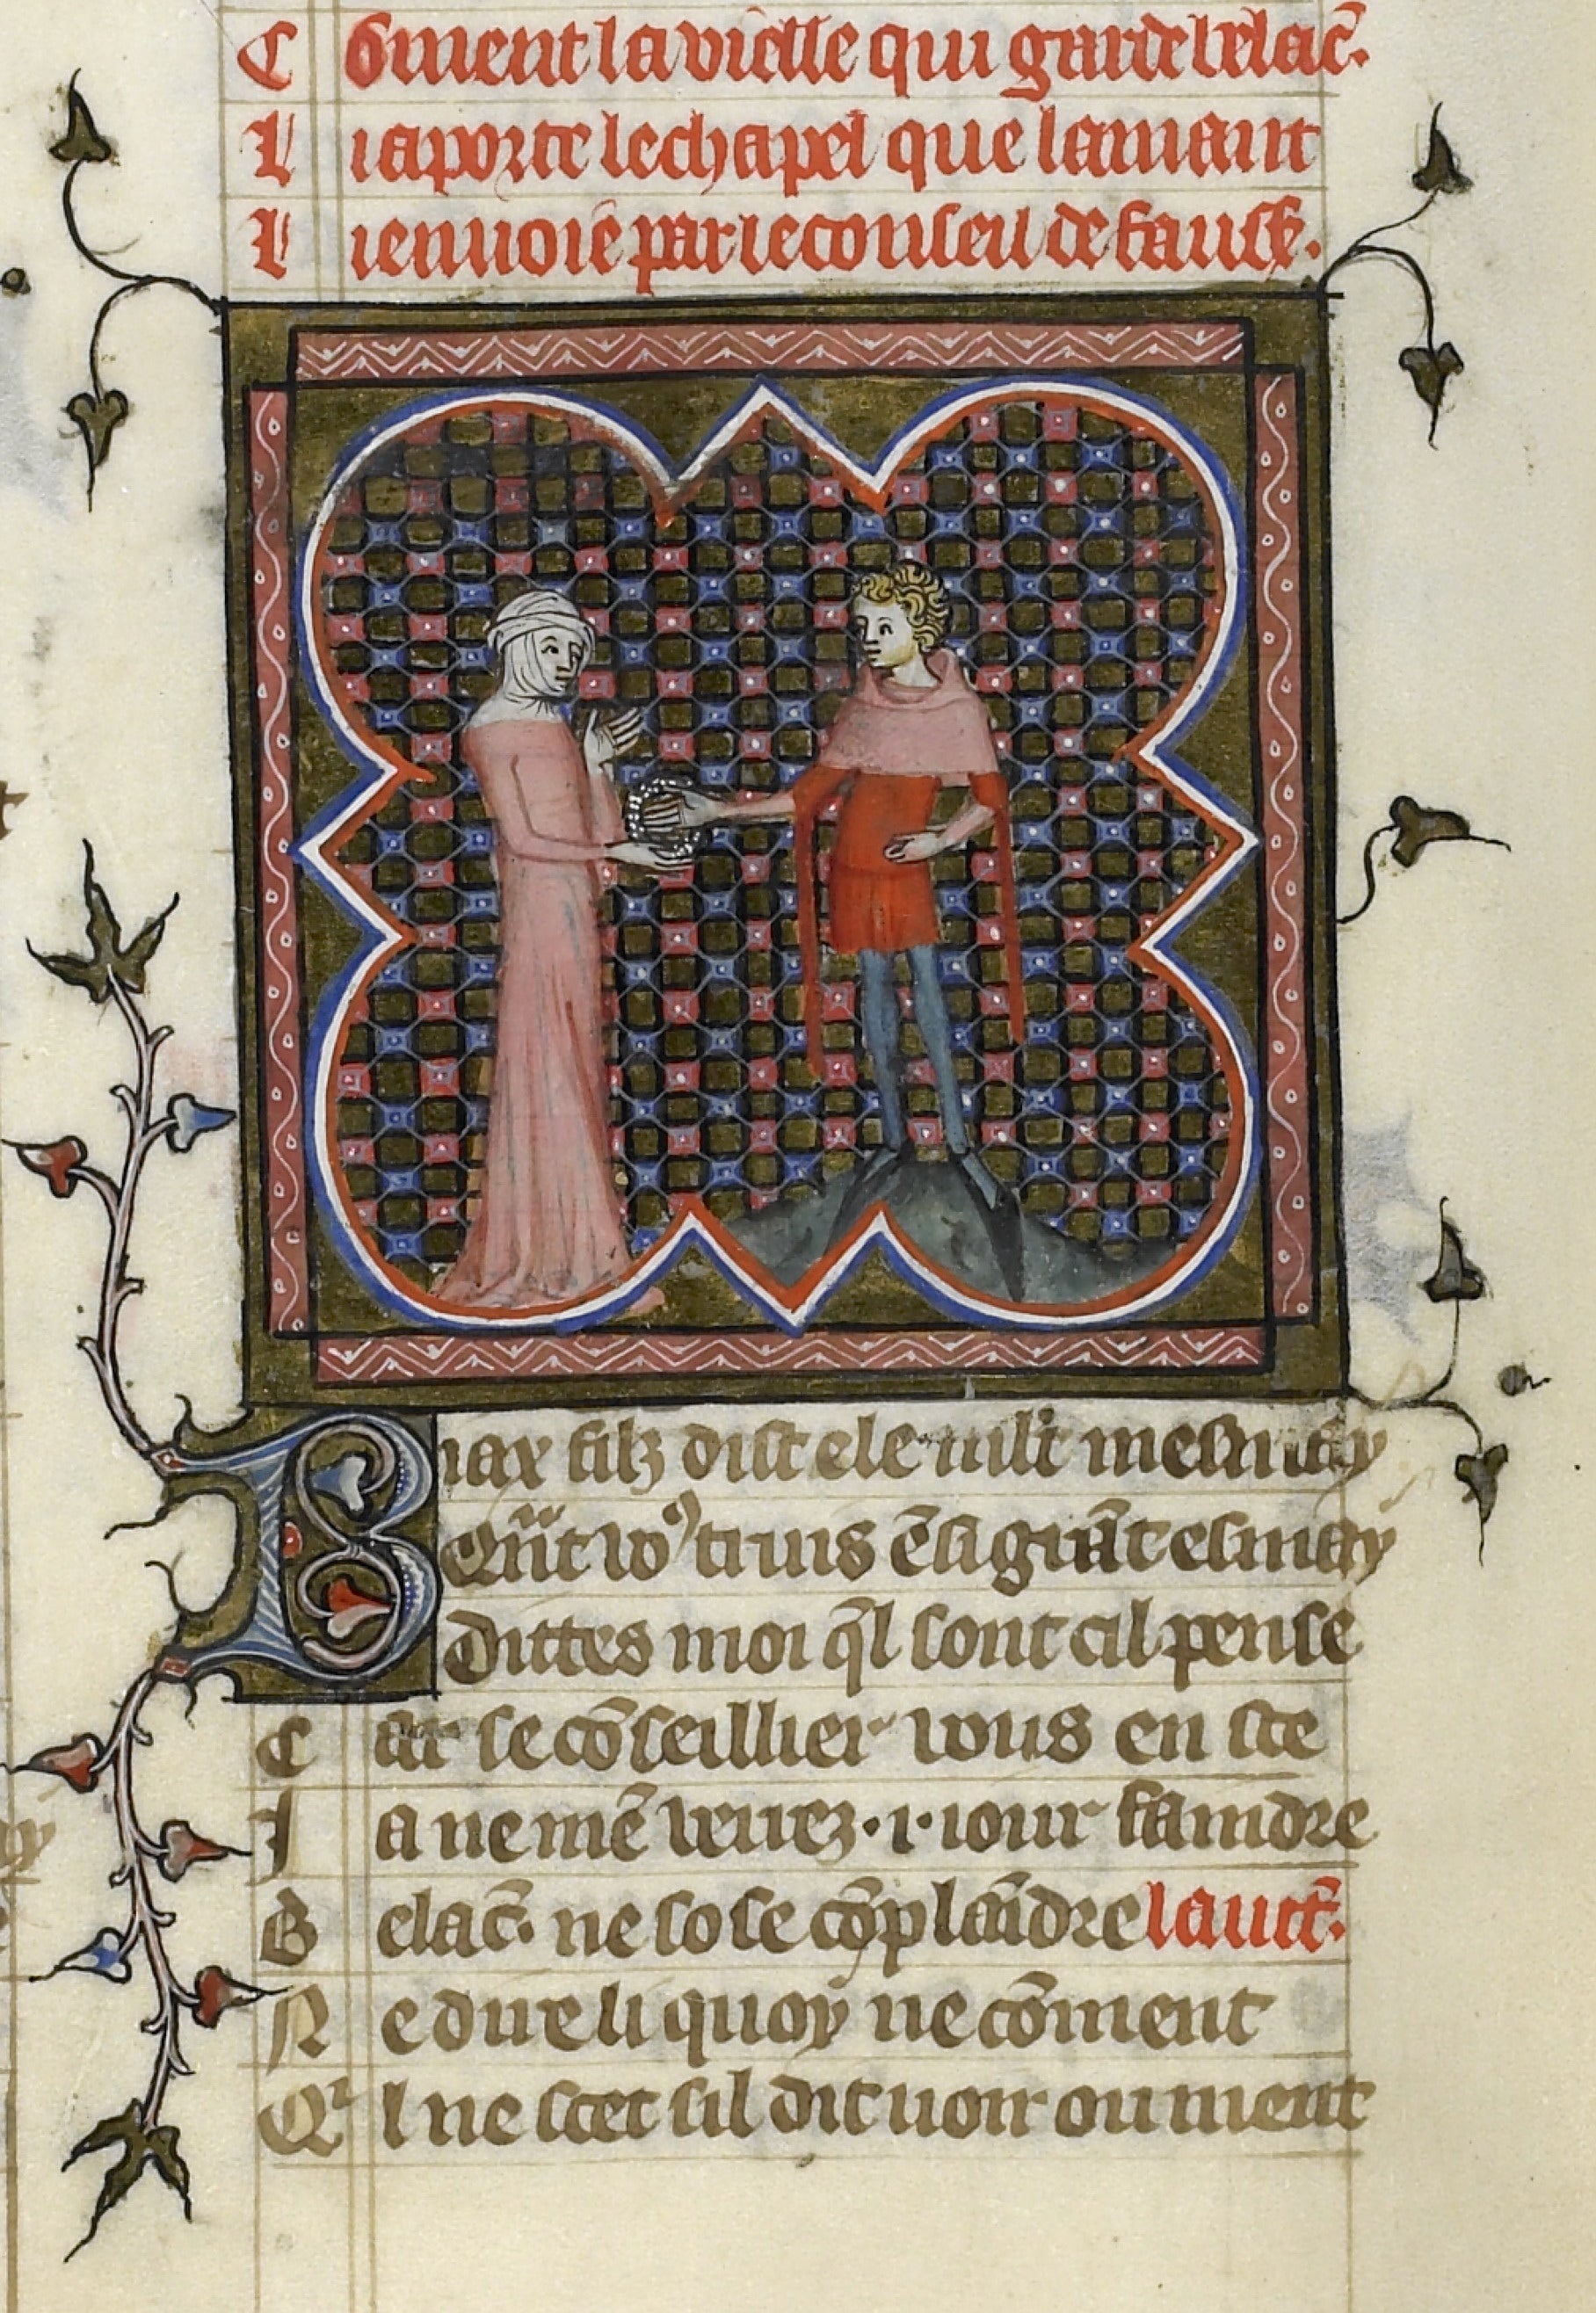 C õment la vielle qui garde belac̃.
L i aporte le chapel que lamant
L i envoie par le conseil de faus s̃.
Biax filz dist ele
Q̃nt vo9 truis ẽ si grãt esmay
Dittes moi q̃l sont cil pense
C ar se cõseillier vous en sce
J a ne mẽ verrez .i. iour faindre
B elac̃. ne so se cõplaĩdre lauct̃.
N e dire li quoy ne cõment
Qi l ne scet sil dit voir ou ment